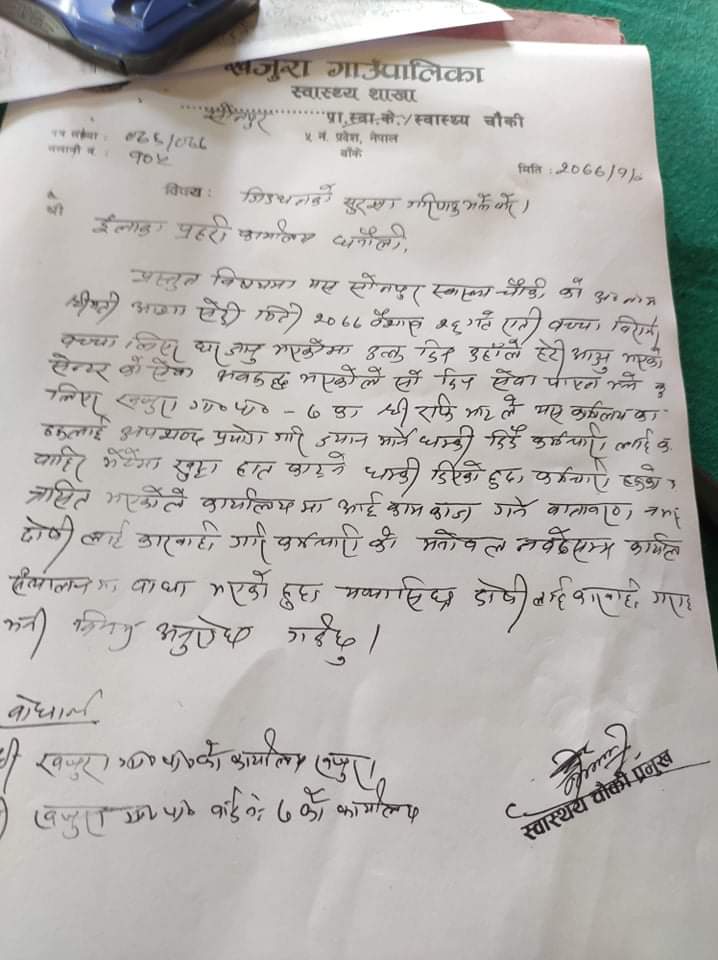 खजुरा गाउँपालिका
स्वास्थ्य शाखा
सोनपुर प्रा.स्वा.के./स्वास्थ्य चौकी
५ नं. प्रदेश, नेपाल
बाँके
पत्र संख्या: ०७६/०७७
चलानी नं.: १०५
मिति: २०७७/१/
श्री
विषय: सुरक्षा गरिदिनु
ईलाका प्रहरी कार्यालय धनौली,
प्रस्तुत विषयमा यस सोनपुर स्वास्थ्य चौकी का अ
श्रीमती आशा मिति २०७७ बैशाख २६ गते राती बच्चा विरामी
बच्चा लिएर घर जानु भएकोमा उक्त दिन उहाँले हेरी आउनु भएको
सेन्टर को अवरुद्ध भएकोले सो दिन सेवा पाएन भन्ने कु
लिएर खजुरा गा०पा० - ७ का श्री ले यस कार्यलय का
हरुलाई अपशब्द प्रयोग गरि ज्यान मार्ने धम्की दिदै कर्मचारी लाई क
बाहिर भेटेमा खुट्टा हात काट्ने धम्की दिएको हुदा कर्मचारी हरुको
त्रसित भएकोले कार्यालय मा आई काम काज गर्ने वातावरण नभई
दोषी लाई कारवाही गरि कर्मचारी को मनोबल नबढेसम्म कार्यालय
संचालन मा बाधा भएको हुदा यथासिघ्र दोषी लाई कारवाही गराई
भनी अनुरोध गर्दछु।
बोधार्थ
श्री खजुरा गा०पा०को कार्यालय खजुरा
खजुरा गा०पा० वार्ड नं. ७ को कार्यालय
स्वास्थ्य चौकी प्रमुख